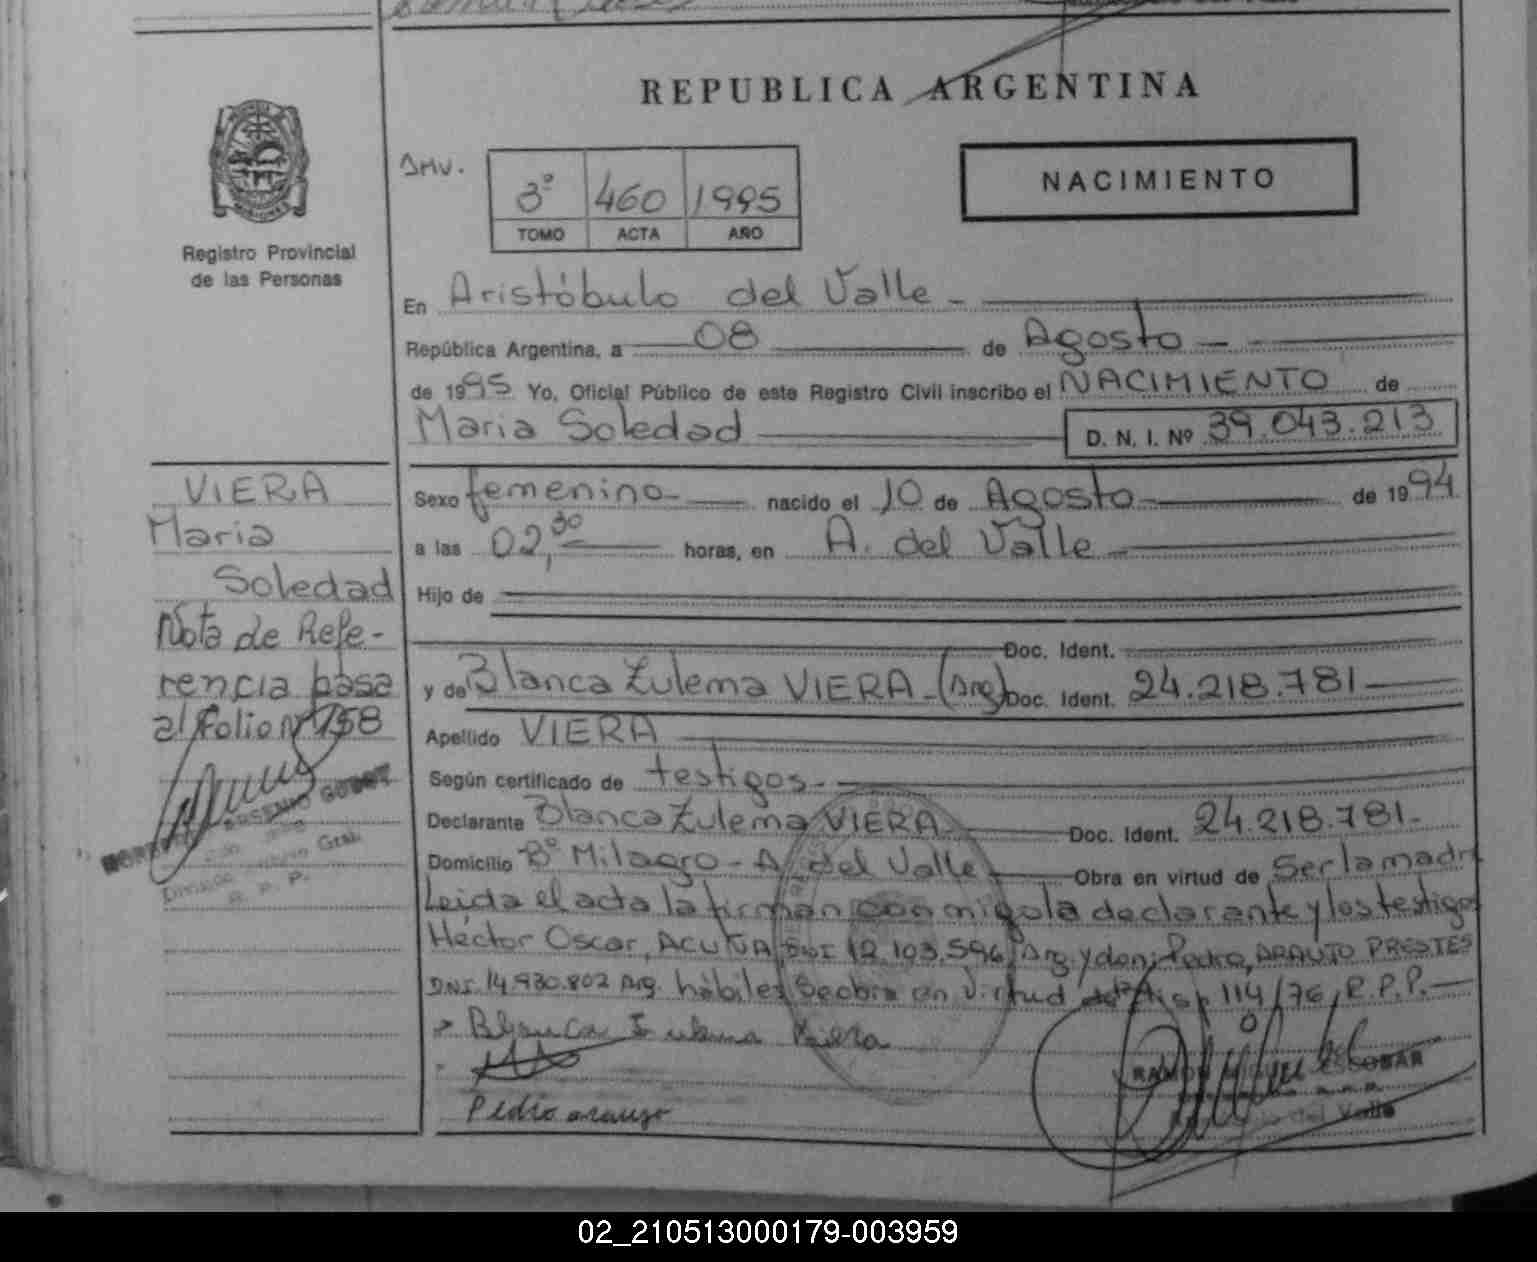 REPUBLICA ARGENTINA
Registro Provincial
de las Personas
3º 460 1995
TOMO ACTA AÑO
NACIMIENTO
En Aristóbulo del Valle -
República Argentina, a 08 de Agosto -
de 1995 Yo, Oficial Público de este Registro Civil inscribo el NACIMIENTO de
Maria Soledad D. N. I. Nº 39.043.213
Sexo femenino - nacido el 10 de Agosto de 1994
a las 02,30 horas, en A. del Valle
Hijo de
Doc. Ident.
y de Blanca Zulema VIERA - (Arg) Doc. Ident. 24.218.781
Apellido VIERA
Según certificado de testigos -
Declarante Blanca Zulema VIERA Doc. Ident. 24.218.781 -
Domicilio Bº Milagro - A. del Valle Obra en virtud de Ser la madre
Leida el acta la firman con migo la declarante y los testigos
Héctor Oscar, ACUÑA DNI 12.103.596 Arg. y don Pedro, ARAUJO PRESTES
DNI. 14.930.802 Arg. hábiles Se obra en Virtud de Disp. 114/76, R.P.P. -
Blanca Zulema Viera
Pedro araujo
RAMON MIGUEL ESCOBAR
del Valle
VIERA
Maria
Soledad
Nota de Refe-
rencia pasa
al folio Nº 158
ARSENIO GODOY
Gral.
R. P. P.
02_210513000179-003959